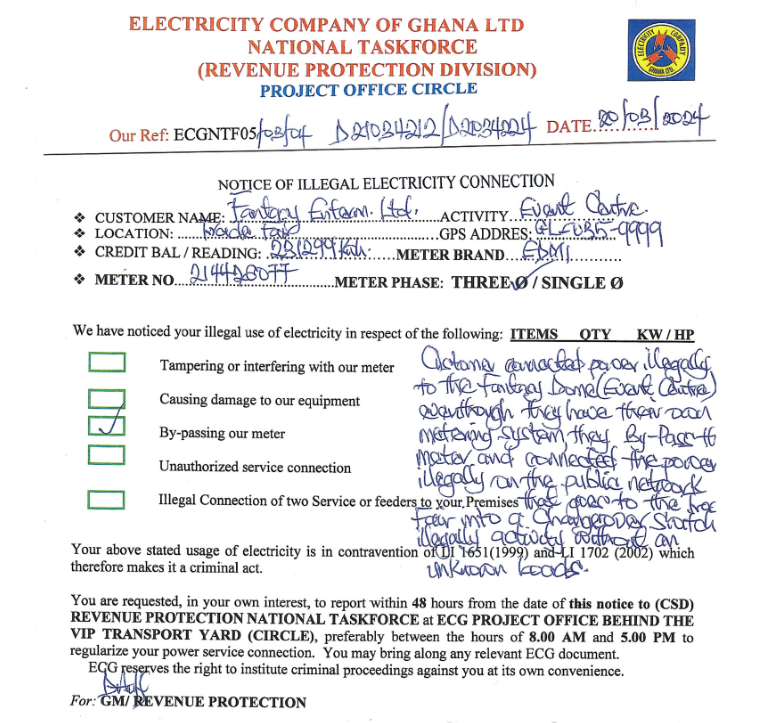 ELECTRICITY COMPANY OF GHANA LTD
NATIONAL TASKFORCE
(REVENUE PROTECTION DIVISION)
PROJECT OFFICE CIRCLE
ELECTRICITY COMPANY GHANA LTD.
Our Ref: ECGNTF05/03/04 D21034212/D2034224 DATE 20/03/2024
NOTICE OF ILLEGAL ELECTRICITY CONNECTION
❖ CUSTOMER NAME: Fantasy Entern. Ltd. ACTIVITY Event Centre.
❖ LOCATION: Trade Fair GPS ADDRES: -9999
❖ CREDIT BAL / READING: 231299Kwh. METER BRAND EDMI
❖ METER NO. 214428077 METER PHASE: THREE Ø / SINGLE Ø
We have noticed your illegal use of electricity in respect of the following: ITEMS QTY KW / HP
Tampering or interfering with our meter
Causing damage to our equipment
By-passing our meter
Unauthorized service connection
Illegal Connection of two Service or feeders to your Premises
Customer connected power illegally
to the Fantasy Dome (Event Centre)
eventhough they have their own
metering system, they By-Pass the
meter and connected the power
illegally on the public network
that goes to the trade
fair into a Changeover Switch
illegally activity without an
unknown loads.
Your above stated usage of electricity is in contravention of LI 1651(1999) and LI 1702 (2002) which
therefore makes it a criminal act.
You are requested, in your own interest, to report within 48 hours from the date of this notice to (CSD)
REVENUE PROTECTION NATIONAL TASKFORCE at ECG PROJECT OFFICE BEHIND THE
VIP TRANSPORT YARD (CIRCLE), preferably between the hours of 8.00 AM and 5.00 PM to
regularize your power service connection. You may bring along any relevant ECG document.
ECG reserves the right to institute criminal proceedings against you at its own convenience.
For: GM/ REVENUE PROTECTION